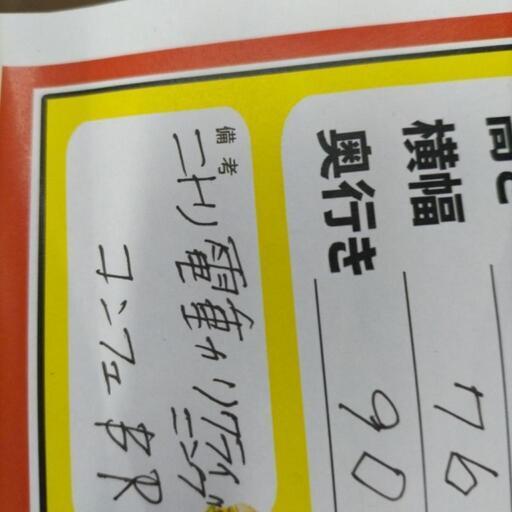 高さ
横幅 76
奥行き 90
備考
ニトリ電動リクライニング
コンフェBR